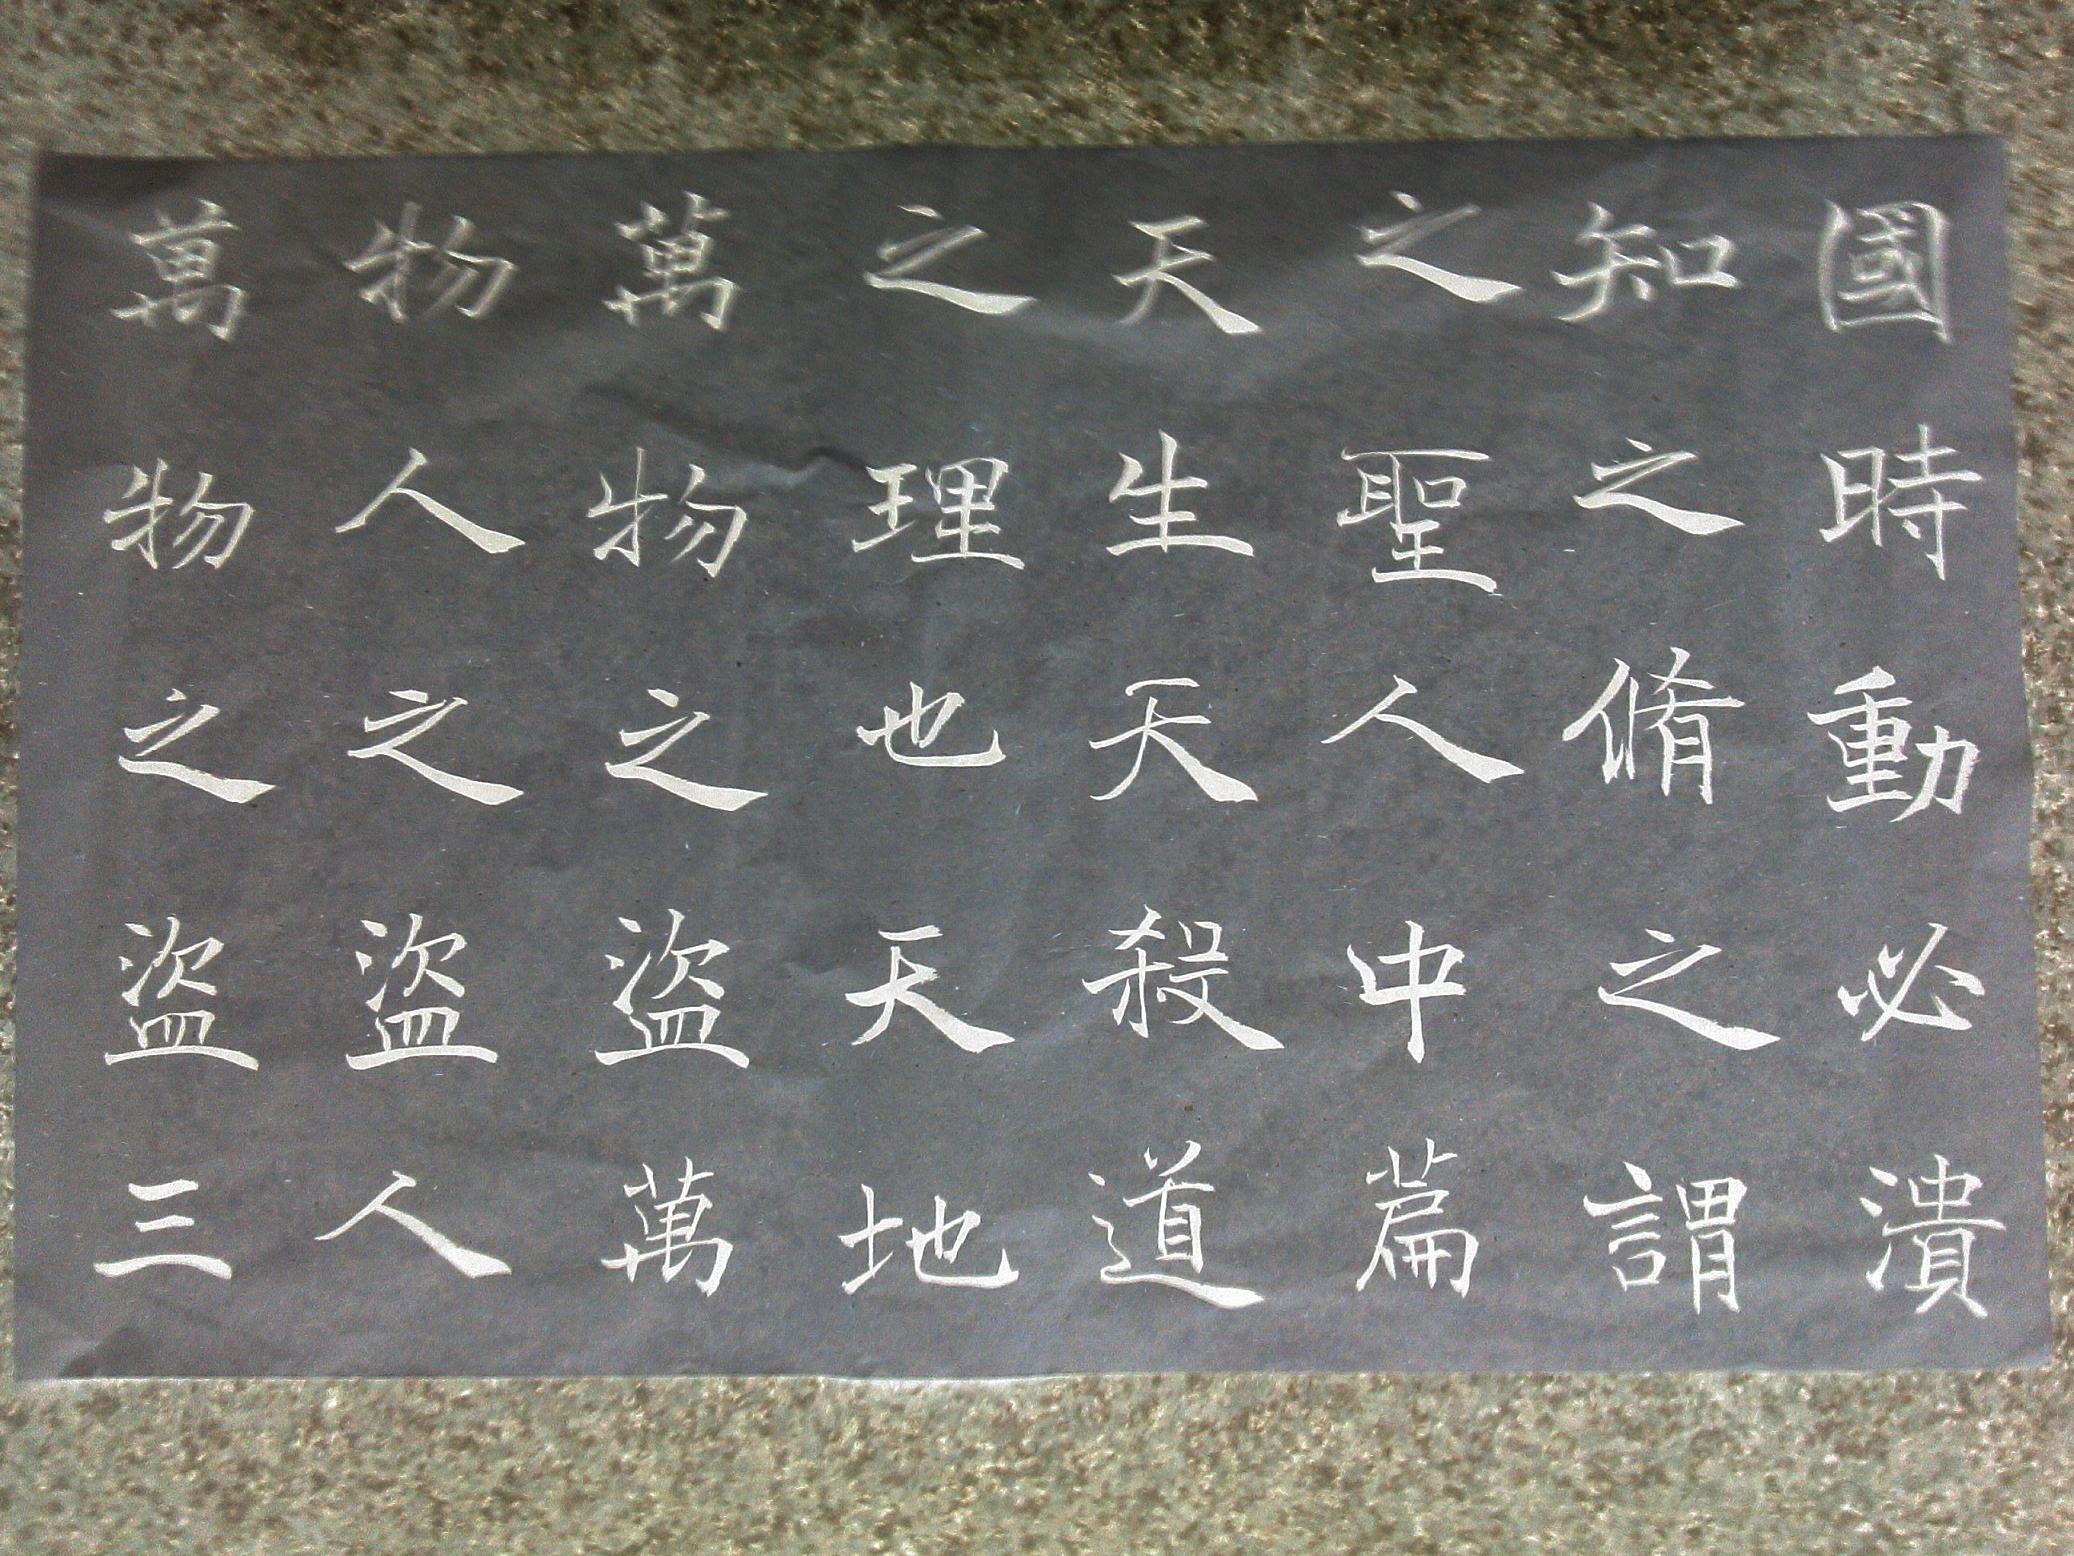 國時動必潰
知之脩之謂
之聖人中篇
天生天殺道
之理也天地
萬物之盜萬
物人之盜人
萬物之盜三